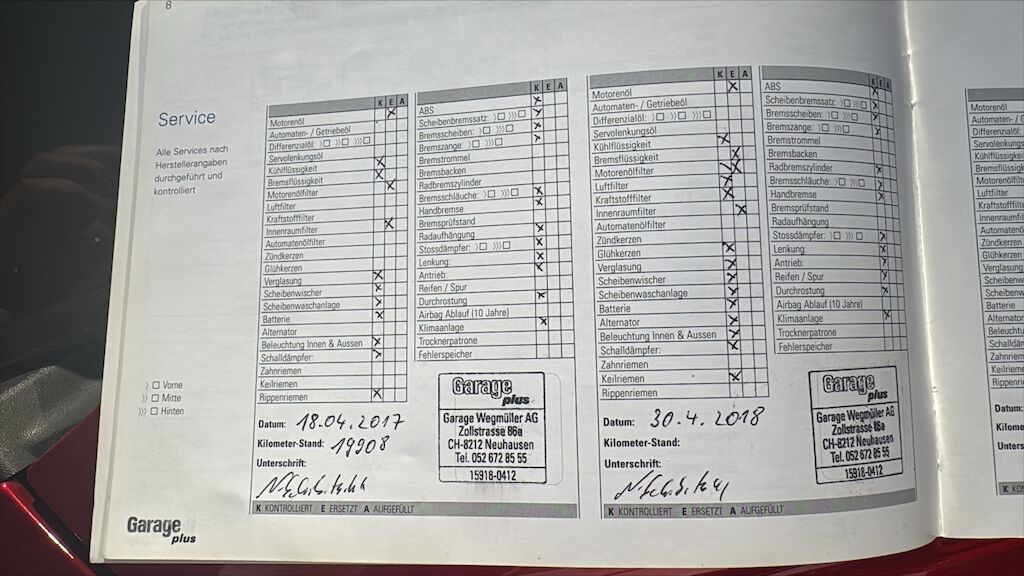 8
Service
Alle Services nach
Herstellerangaben
durchgeführt und
kontrolliert
⟩ ☐ Vorne
⟩⟩ ☐ Mitte
⟩⟩⟩ ☐ Hinten
Garage
plus
K E A
Motorenöl
Automaten- / Getriebeöl
Differenzialöl: ⟩☐ ⟩⟩☐ ⟩⟩⟩☐
Servolenkungsöl
Kühlflüssigkeit
Bremsflüssigkeit
Motorenölfilter
Luftfilter
Kraftstofffilter
Innenraumfilter
Automatenölfilter
Zündkerzen
Glühkerzen
Verglasung
Scheibenwischer
Scheibenwaschanlage
Batterie
Alternator
Beleuchtung Innen & Aussen
Schalldämpfer:
Zahnriemen
Keilriemen
Rippenriemen
K E A
ABS
Scheibenbremssatz: ⟩☐ ⟩⟩⟩☐
Bremsscheiben: ⟩☐ ⟩⟩⟩☐
Bremszange: ⟩☐ ⟩⟩⟩☐
Bremstrommel
Bremsbacken
Radbremszylinder
Bremsschläuche: ⟩☐ ⟩⟩⟩☐
Handbremse
Bremsprüfstand
Radaufhängung
Stossdämpfer: ⟩☐ ⟩⟩⟩☐
Lenkung:
Antrieb:
Reifen / Spur
Durchrostung
Airbag Ablauf (10 Jahre)
Klimaanlage
Trocknerpatrone
Fehlerspeicher
Datum: 18.04.2017
Kilometer-Stand: 19908
Unterschrift:
Garage
plus
Garage Wegmüller AG
Zollstrasse 86a
CH-8212 Neuhausen
Tel. 052 672 85 55
15918-0412
K KONTROLLIERT E ERSETZT A AUFGEFÜLLT
K E A
Motorenöl
Automaten- / Getriebeöl
Differenzialöl: ⟩☐ ⟩⟩☐ ⟩⟩⟩☐
Servolenkungsöl
Kühlflüssigkeit
Bremsflüssigkeit
Motorenölfilter
Luftfilter
Kraftstofffilter
Innenraumfilter
Automatenölfilter
Zündkerzen
Glühkerzen
Verglasung
Scheibenwischer
Scheibenwaschanlage
Batterie
Alternator
Beleuchtung Innen & Aussen
Schalldämpfer:
Zahnriemen
Keilriemen
Rippenriemen
K E A
ABS
Scheibenbremssatz: ⟩☐ ⟩⟩⟩☐
Bremsscheiben: ⟩☐ ⟩⟩⟩☐
Bremszange: ⟩☐ ⟩⟩⟩☐
Bremstrommel
Bremsbacken
Radbremszylinder
Bremsschläuche: ⟩☐ ⟩⟩⟩☐
Handbremse
Bremsprüfstand
Radaufhängung
Stossdämpfer: ⟩☐ ⟩⟩⟩☐
Lenkung:
Antrieb:
Reifen / Spur
Durchrostung
Airbag Ablauf (10 Jahre)
Klimaanlage
Trocknerpatrone
Fehlerspeicher
Datum: 30.4.2018
Kilometer-Stand:
Unterschrift:
Garage
plus
Garage Wegmüller AG
Zollstrasse 86a
CH-8212 Neuhausen
Tel. 052 672 85 55
15918-0412
K KONTROLLIERT E ERSETZT A AUFGEFÜLLT
Motorenöl
Zündkerzen
Glühkerzen
Verglasung
Batterie
Alternator
Zahnriemen
Keilriemen
Datum: